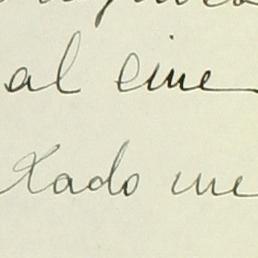 al cine
xado me